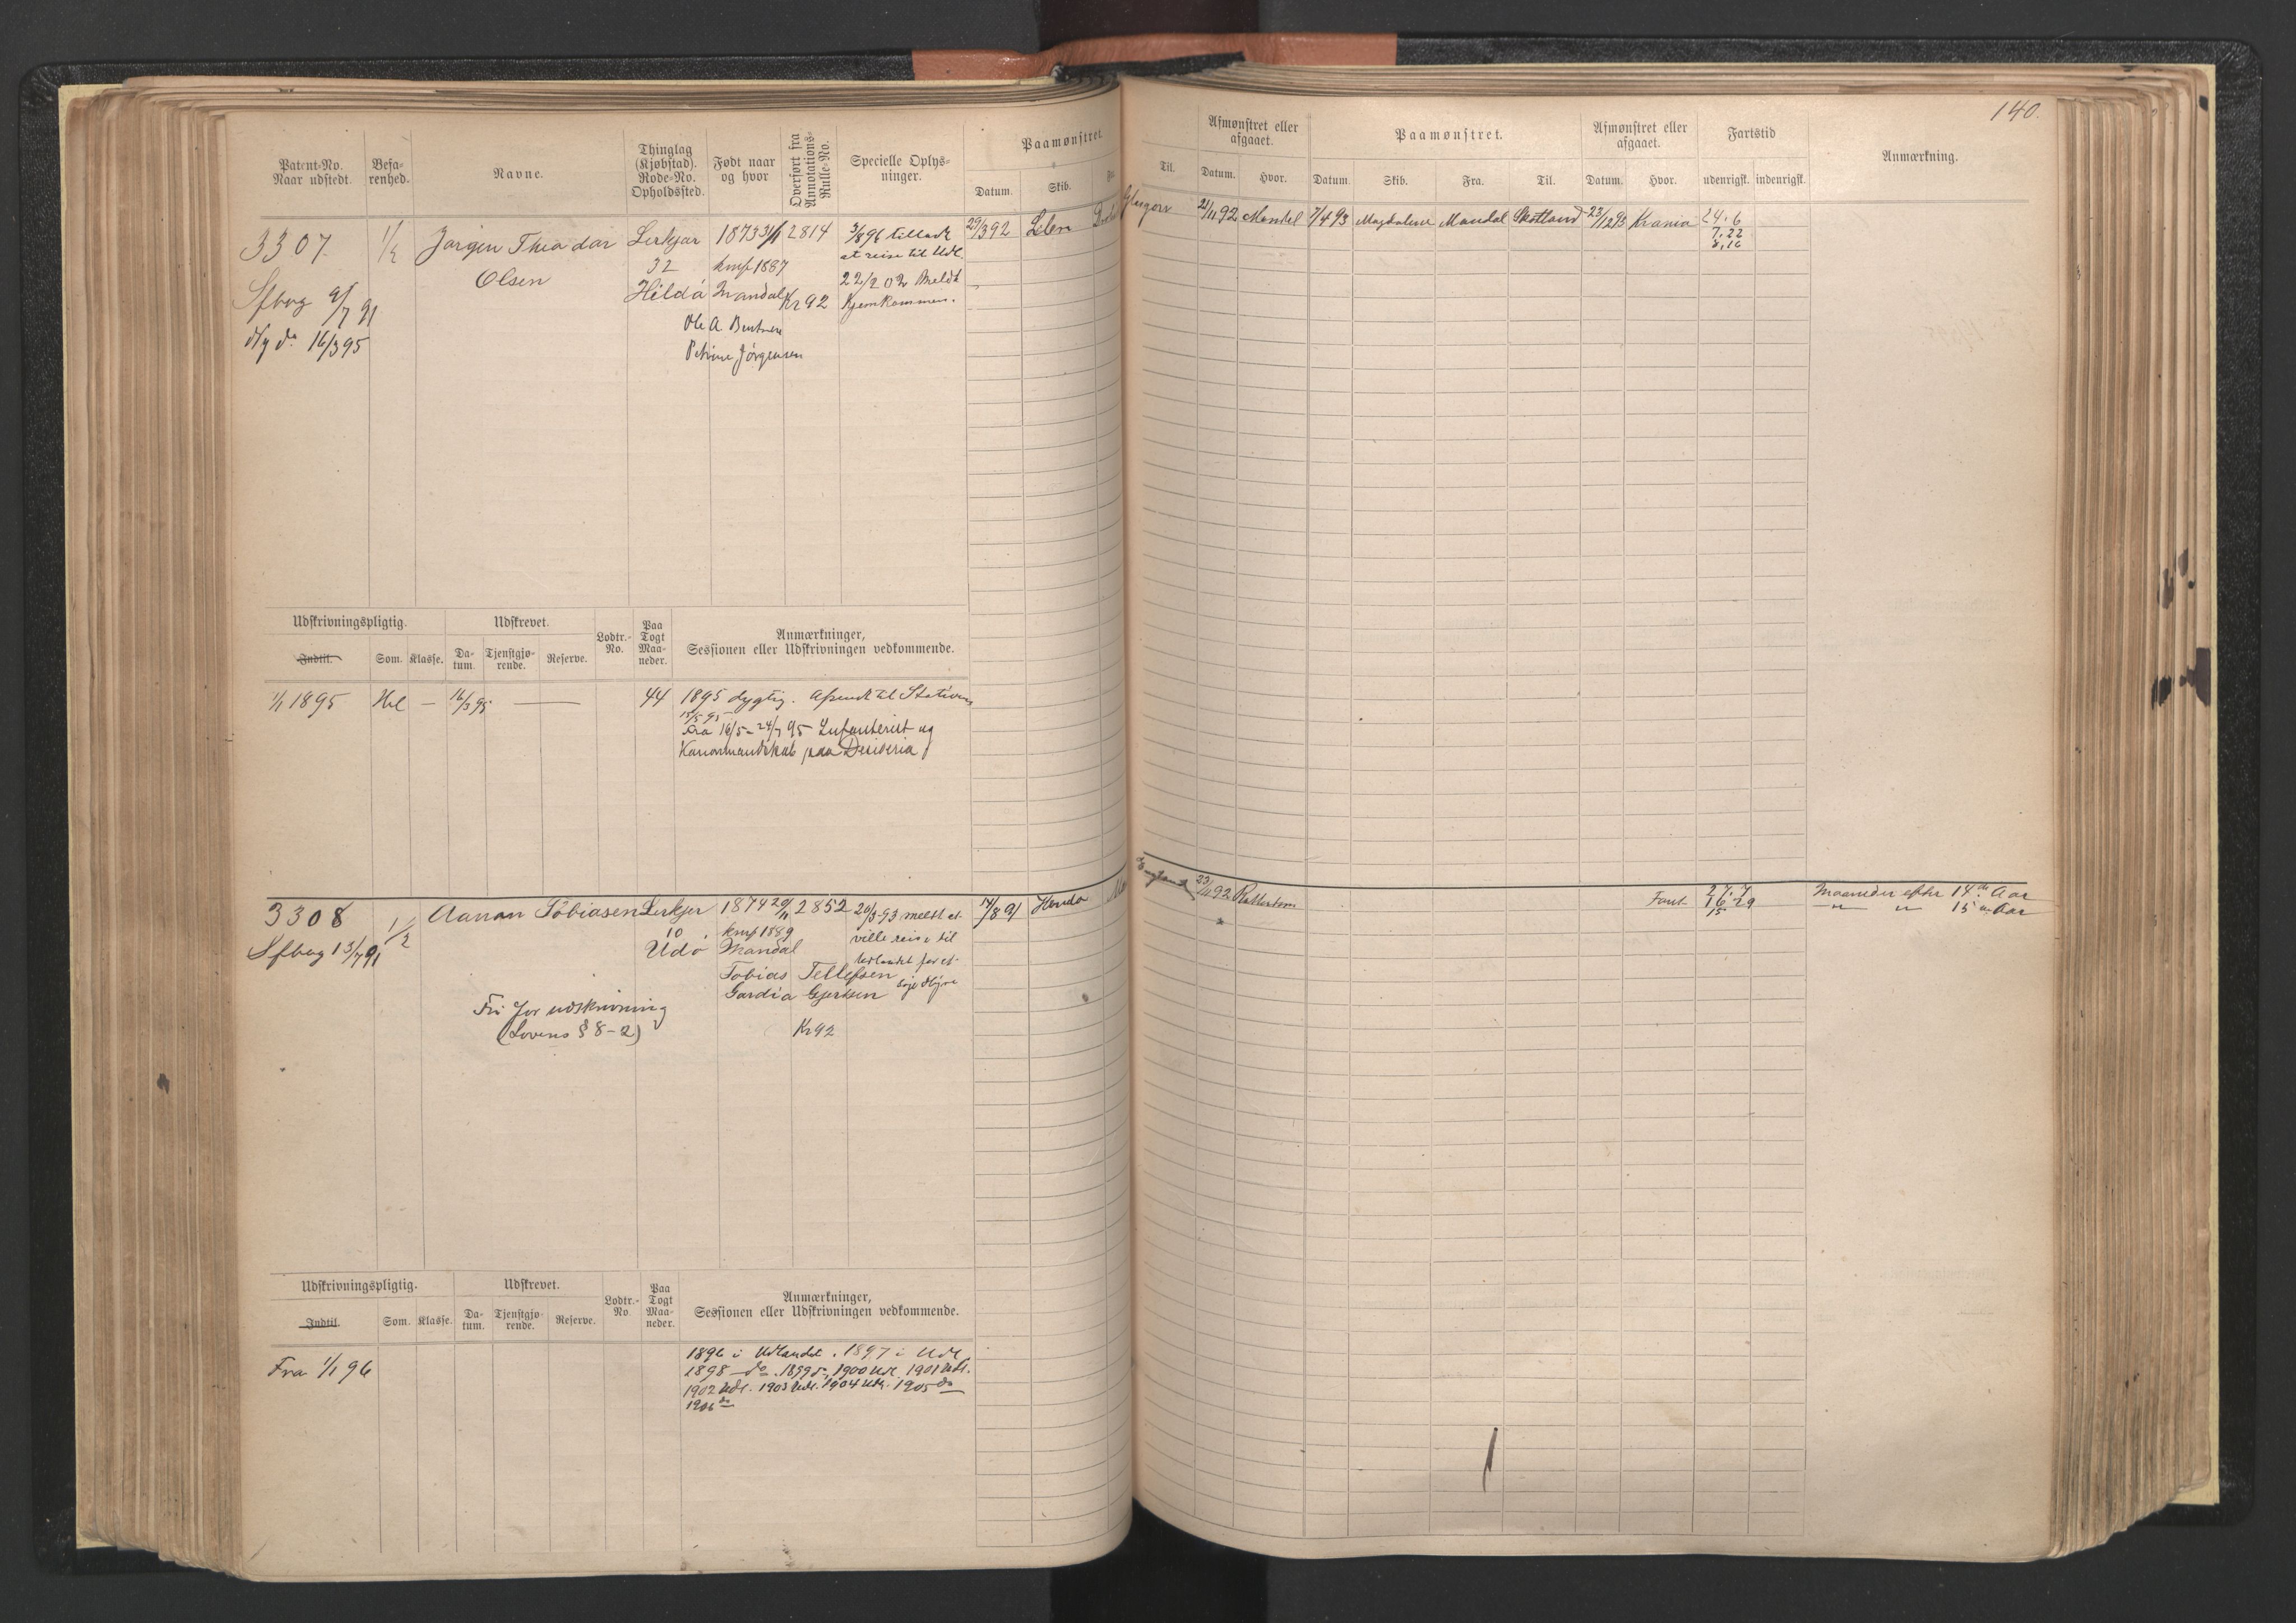 140.
Patent-No. Naar udstedt.
Befarenhed.
Navne.
Thinglag (Kjøbstad). Rode-No. Opholdssted.
Født naar og hvor
Overført fra Annotations-Rulle-No.
Specielle Oplysninger.
Paamønstret.
Datum. Skib. Fra. Til.
Afmønstret eller afgaaet.
Datum. Hvor.
Paamønstret.
Datum. Skib. Fra. Til.
Afmønstret eller afgaaet.
Datum. Hvor.
Fartstid
udenrigsk. indenrigsk.
Anmærkning.
3307. 1/2 Jørgen Theodor Lerkjær 1873 2814 3/8 96 tilladt 29/3 92 Glasgow 21/11 92 Mandal 7/4 93 Magdalene Mandal Skotland 23/12 93 Krania 24.6
7.22
8.16
Olsen 32 kmf 1887 at reise til Udl.
Sfbog 9/7 91 Mandal Kr 92 22/2 02 Meldt
Hjemkommen.
16/3 95 Ole A.
Petrine Jørgensen
Udskrivningspligtig. Udskrevet. Lodtr.-No. Paa Togt Maaneder. Anmærkninger, Sessionen eller Udskrivningen vedkommende.
Indtil. Som. Klasse. Datum. Tjenstgjørende. Reserve.
1/1 1895 Hel — 16/3 95 — 44 1895 dygtig. Afsendt til Stationen
15/5 95
Fra 16/5 - 24/7 95 Infanterist og
Kanonmandskab paa Desideria
3308 1/2 Aanon Tobiasen Lerkjer 1874 29/11 2852 20/3 93 meldt at 14/8 91 England 23/11 92 Rotterdam 27.7 Maaneder efter 14de Aar
Sfbog 13/7 91 10 kmf 1889 ville reise til 16 29 " " 15 " Aar
15
Udø Mandal Udlandet for at
Tobias Tellefsen søge Hyre
Gjertsen
Fri for udskrivning
(Lovens § 8-2) Kr 92
Udskrivningspligtig. Udskrevet. Lodtr.-No Paa Togt Maaneder. Anmærkninger, Sessionen eller Udskrivningen vedkommende.
Indtil. Som. Klasse. Datum. Tjenstgjørende. Reserve.
Fra 1/1 96 1896 i Udlandet. 1897 i Udl
1898 do. 1899 do, 1900 Udl. 1901 Udl.
1902 Udl. 1903 Udl. 1904 Udl. 1905 do
1906 do